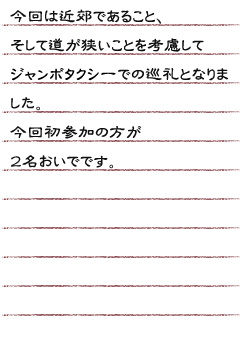 今回は近郊であること、
そして道が狭いことを考慮して
ジャンボタクシーでの巡礼となりま
した。
今回初参加の方が
２名おいでです。